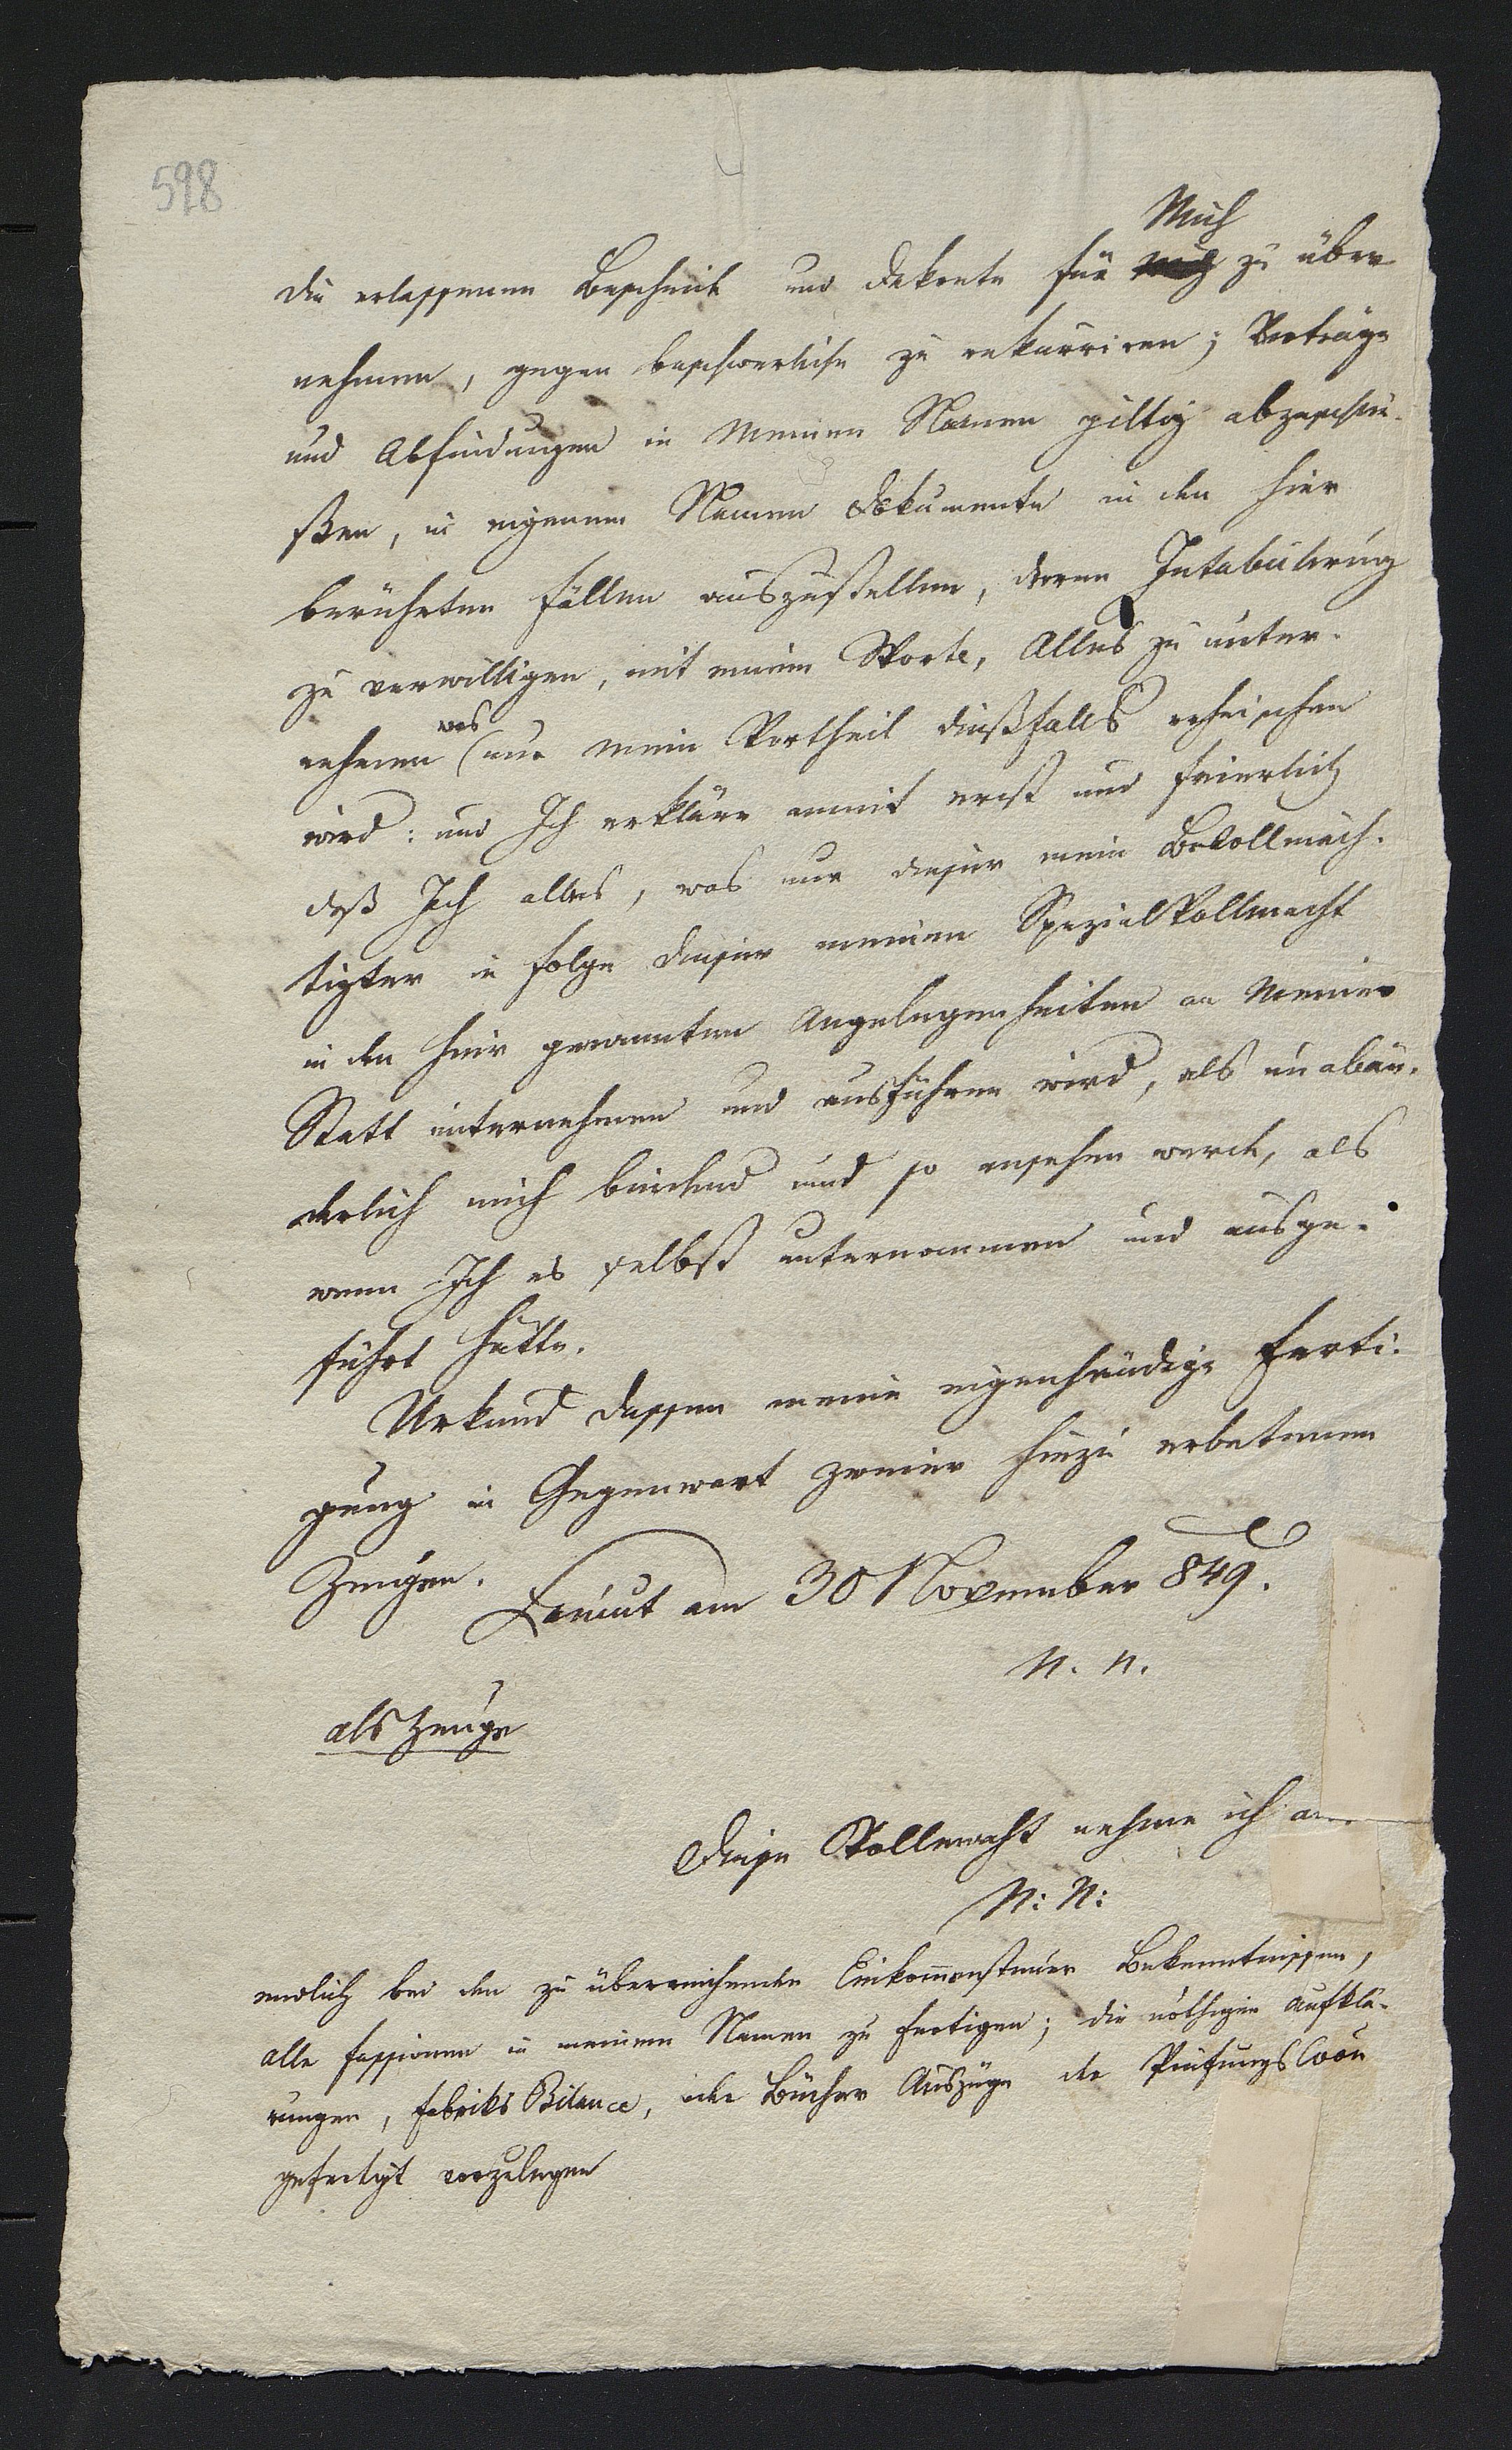 598
Mich
die erlassenen Bescheide und Dekrete für mich zu über
nehmen, gegen beschwerliche zu rekurriren; Verträge
und Abfindungen in Meinem Namen giltig abzuschlie-
ßen, in eigenem Namen Dokumente in den hier
berührten Fällen auszustellen, deren Intabulirung
zu verwilligen, mit einem Worte, Alles zu unter-
was
nehmen (nur mein Vortheil dießfalls erheischen
wird: und Ich erkläre anmit ernst und feierlich
daß Ich alles, was nur dieser mein Bevollmäch-
tigter in Folge dieser meiner Spezial Vollmacht
in den hier genannten Angelegenheiten an Meiner
Statt unternehmen und ausführen wird, als unabän-
derlich mich bindend und so ansehen werde, als
wenn Ich es selbst unternommen und ausge-
führt hätte.
Urkund dessen meine eigenhändige Ferti-
gung in Gegenwart zweier hiezu erbetenen
Zeugen.
Łańcut am 30 November 849.
N. N.
als Zeuge
Diese Vollmacht nehme ich an.
N: N:
endlich bei den zu überreichenden Einkom̄ensteuer Bekenntnissen,
alle Fassionen in meinem Namen zu fertigen; die nöthigen Aufklä-
rungen, Fabriks Bilance, oder Bücher Auszüge der Prüfungs Coon
gefertigt vorzulegen